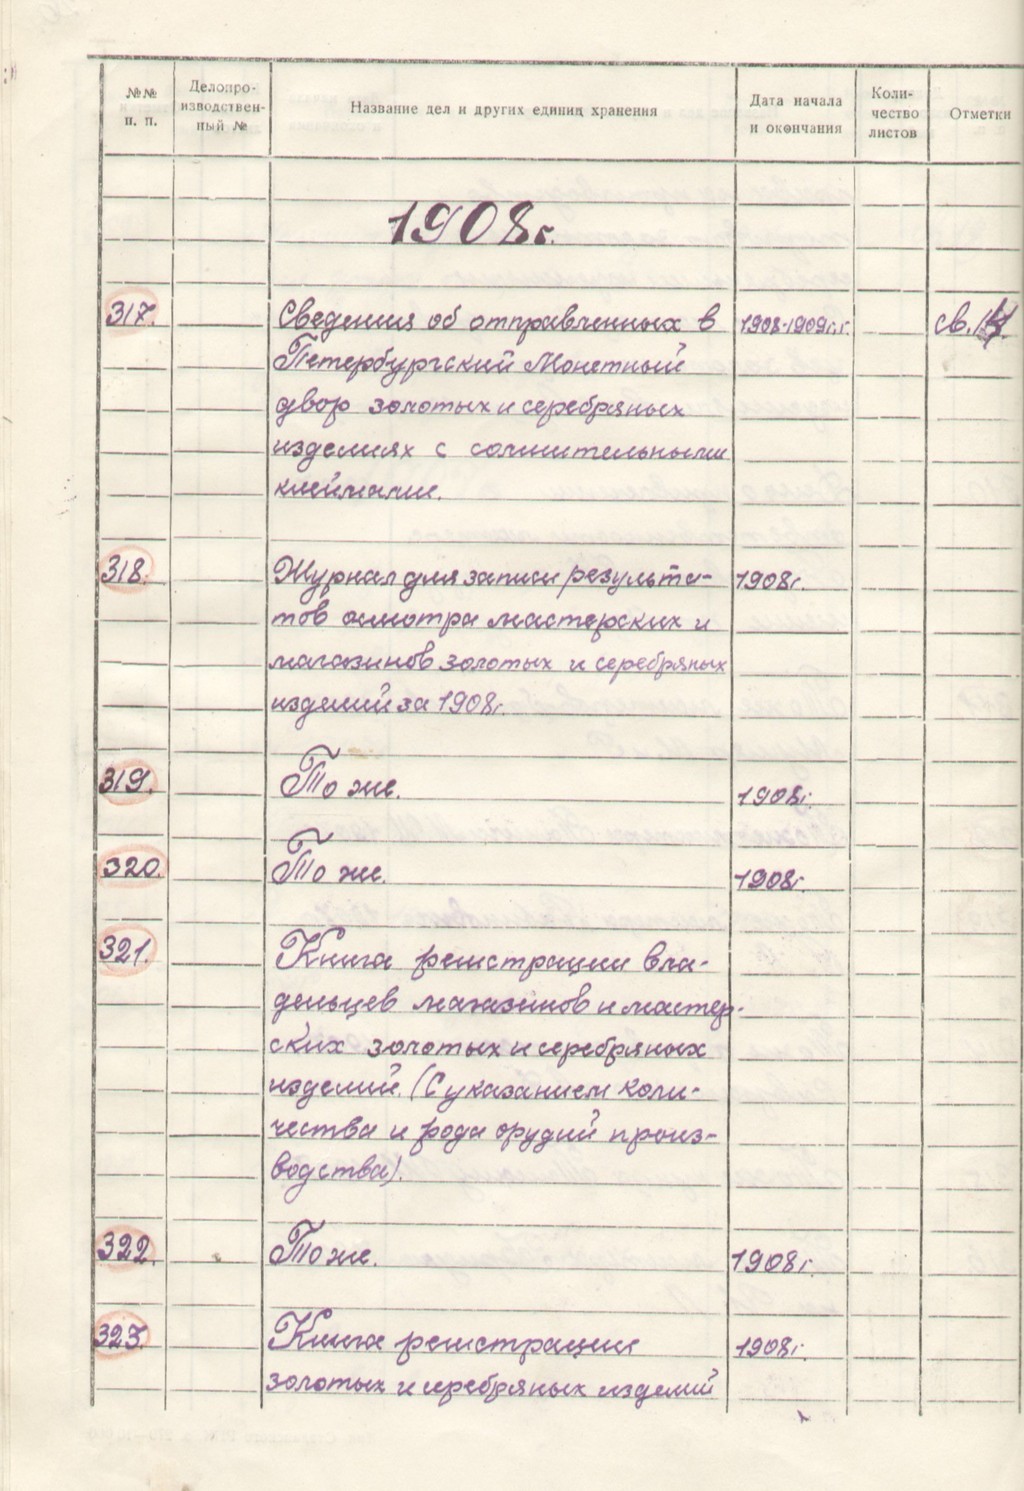 №№ п. п.
Делопро-
изводствен-
ный №
Название дел и других единиц хранения
Дата начала
и окончания
Коли-
чество
листов
Отметки
1908г.
317. Сведения об отправленных в 1908-1909г.г. св.
Петербургский Монетный
двор золотых и серебряных
изделиях с сомнительными
клеймами.
318. Журнал для записи результа- 1908г.
тов осмотра мастерских и
магазинов золотых и серебряных
изделий за 1908г.
319. То же. 1908г.
320. То же. 1908г.
321. Книга регистрации вла-
дельцев магазинов и мастер-
ских золотых и серебряных
изделий. (С указанием коли-
чества и рода орудий произ-
водства).
322. То же. 1908г.
323. Книга регистрации 1908г.
золотых и серебряных изделий